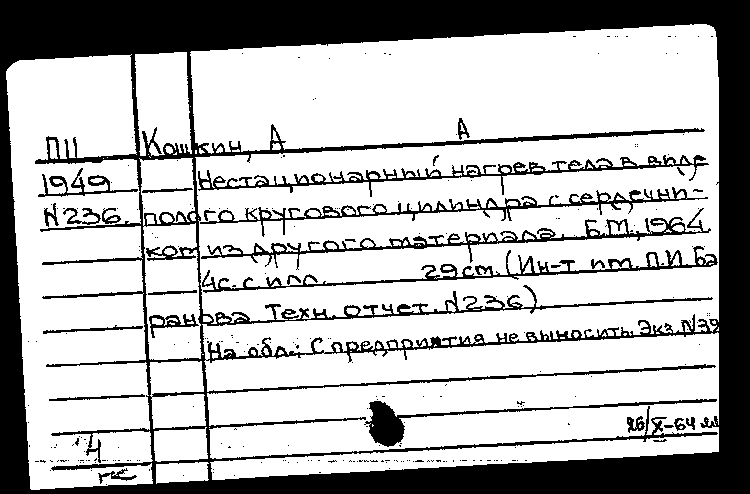 П11 Кошкин, А А
1949 Нестационарный нагрев тела в виде
N236. полого кругового цилиндра с сердечни-
ком из другого материала. Б.М., 1964.
4с. с илл. 29 см. (Ин-т им. П.И. Ба
ранова Техн. отчет. N236)
На обл.: С предприятия не выносить. Экз. N39
26/X-64
4